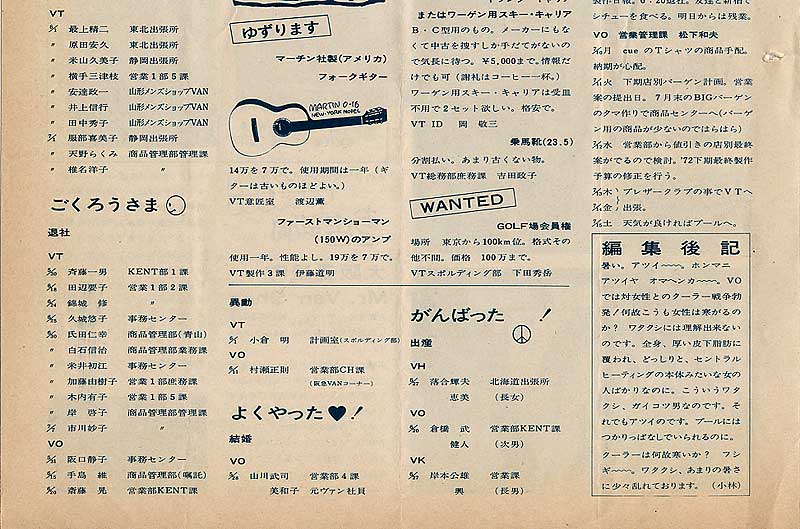 VT
最上精二 東北出張所
原田安久 東北出張所
米山久美子 静岡出張所
横手三津枝 営業1部5課
安達政一 山形メンズショップVAN
井上信行 山形メンズショップVAN
田中秀子 山形メンズショップVAN
服部喜美子 静岡出張所
天野らくみ 商品管理部管理課
椎名洋子 〃
ごくろうさま
退社
VT
斉藤一男 KENT部1課
田辺要子 営業1部2課
錦城 修 〃
久城悠子 事務センター
氏田仁幸 商品管理部(青山)
白石信治 商品管理部業務課
米井初江 事務センター
加藤由樹子 営業1部庶務課
木内有子 営業1部5課
岸 啓子 商品管理部管理課
市川妙子 〃
VO
阪口静子 事務センター
手島 維 商品管理部(嘱託)
斎藤 晃 営業部KENT課
ゆずります
マーチン社製(アメリカ)
フォークギター
MARTIN O-16
NEW-YORK MODEL
14万を7万で。使用期間は一年(ギ
ターは古いものほどよい。)
VT意匠室 渡辺薫
ファーストマンショーマン
(150W)のアンプ
使用一年。性能よし。19万を7万で。
VT製作3課 伊藤道明
異動
VT
小倉 明 計画室(スポルディング部)
VO
村瀬正則 営業部CH課
(阪急VANコーナー)
よくやった♥!
結婚
VO
山川武司 営業部4課
美和子 元ヴァン社員
またはワーゲン用スキー・キャリア
B・C型用のもの。メーカーにもな
くて中古を捜すしか手だてがないの
で気長に待つ。¥5,000まで。情報だ
けでも可(謝礼はコーヒー一杯。)
ワーゲン用スキー・キャリアは受皿
不用で2セット欲しい。格安で。
VT ID 岡 敬三
乗馬靴(23.5)
分割払い。あまり古くない物。
VT総務部庶務課 吉田政子
WANTED
GOLF場会員権
場所 東京から100km位。格式その
他不問。価格 100万まで。
VTスポルディング部 下田秀岳
がんばった !
出産
VH
落合輝夫 北海道出張所
恵美 (長女)
VO
倉橋 武 営業部KENT課
健人 (次男)
VK
岸本公雄 営業課
興 (長男)
シチューを食べる。明日からは残業。
VO 営業管理課 松下和夫
月 cueのTシャツの商品手配。
納期が心配。
火 下期店別バーゲン計画。営業
案の提出日。7月末のBIGバーゲン
のタマ作りで商品センターへ(バーゲ
ン用の商品が少ないのではらはら)
水 営業部から値引きの店別最終
案がでるので検討。'72下期最終製作
予算の修正を行う。
木 ブレザークラブの事でVTへ
金 出張。
土 天気が良ければプールへ。
編集後記
暑い。アツイ〜〜。ホンマニ
アツイヤ オマヘンカ〜〜。VO
では対女性とのクーラー戦争勃
発!何故こうも女性は寒がるの
か? ワタクシには理解出来ない
のです。全身、厚い皮下脂肪に
覆われ、どっしりと、セントラル
ヒーティングの本体みたいな女の
人ばかりなのに。こういうワタ
クシ、ガイコツ男なのです。そ
れでもアツイのです。プールには
つかりっぱなしでいられるのに。
クーラーは何故寒いか? フシ
ギ〜〜。ワタクシ、あまりの暑さ
に少々乱れております。(小林)